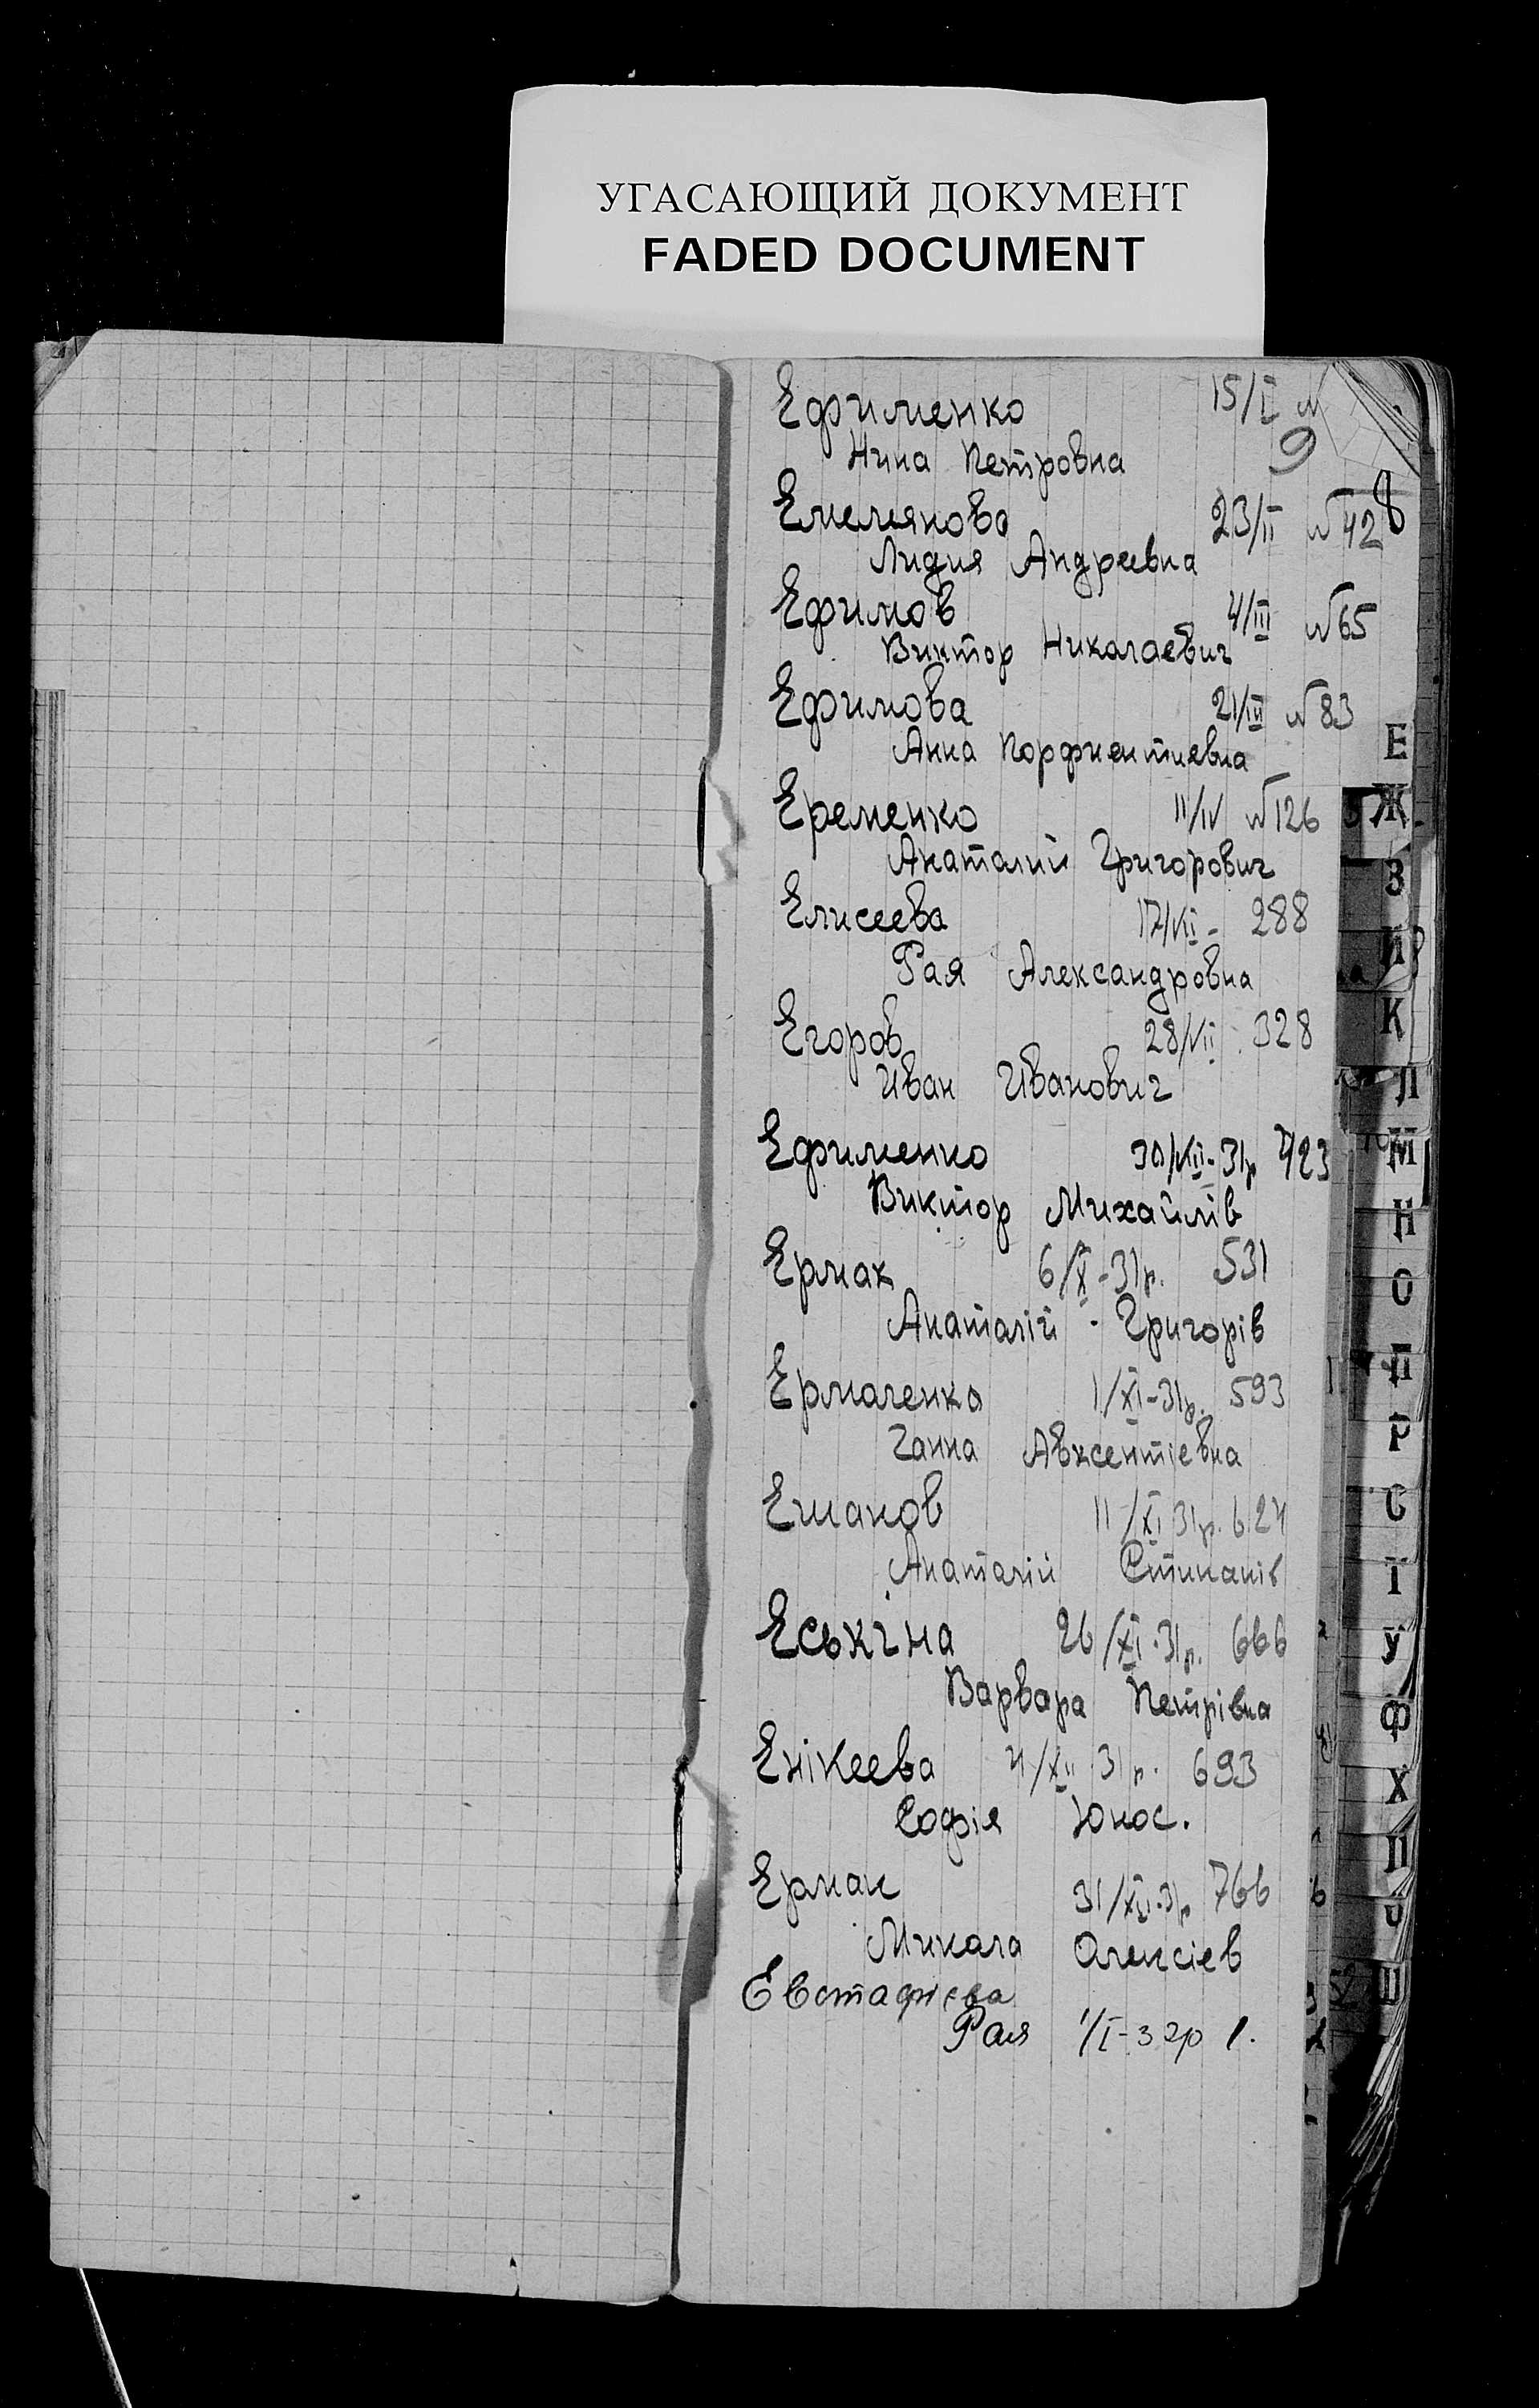 УГАСАЮЩИЙ ДОКУМЕНТ
FADED DOCUMENT
Ефименко 15/I №
9
Нина Петровна
8
Емельянова 23/II №42
Лидия Андреевна
Ефимов 4/III №65
Виктор Николаевич
Ефимова 21/III №83
Анна Порфиентиевна
Еременко 11/IV №126
Анаталий Григорович
Елисеева 17/VII - 288
Рая Александровна
Егоров 28/VII 328
Иван Иванович
Ефименко 30/VIII-31р 423
Виктор Михайлів
Ермак 6/X-31р. 531
Анаталій - Григорів
Ермоленко 1/XI-31р. 593
Ганна Авксентіевна
11/XI 31р. 624
Анаталій
Еськіна 26/XI-31р. 666
Варвара Петрівна
Енікеева 4/XII 31р. 693
Софія Юнос.
Ермак 31/XII-31р 766
Микола Олексіев
Евстафієва
Рая 1/I-32р 1.
Е
Ж
З
И
К
Л
М
Н
О
П
Р
С
Т
У
Ф
Х
Ц
Ш